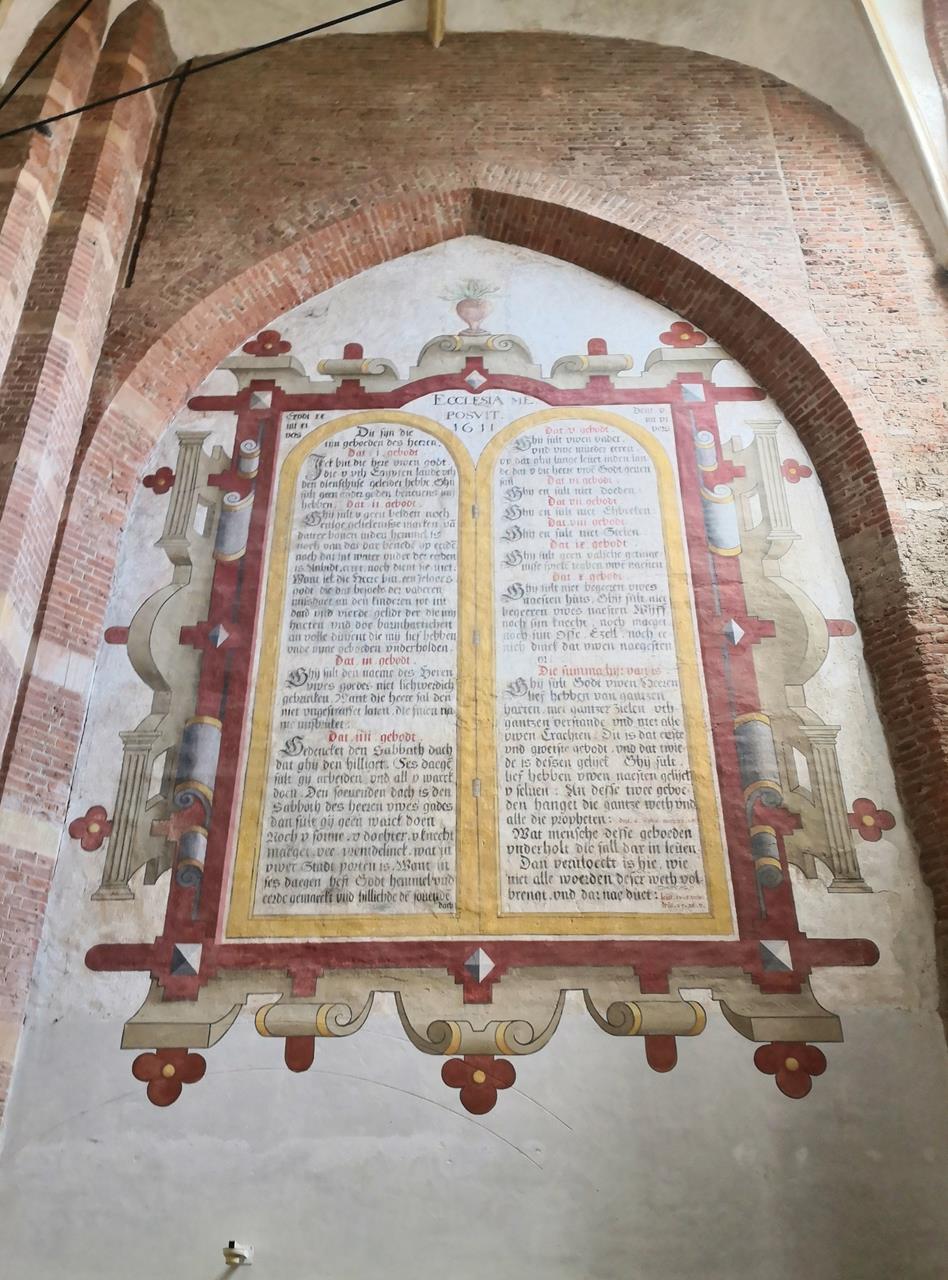 ECCLESIA ME
POSVIT.
1611
Exodi xx
Deut. v
Dit sijn die
tein geboeden des heren.
Dat .i. gebodt.
die v vth Egypten lande vth
den dienschuse geleidet hebbe. Ghij
sult geen ander goden
hebben. Dat .ii. gebodt.
Ghij sult v geen belden noch
enige gelickenisse maeken, va
boven inden hemmel is
noch van dat dat benede op erde
noch dat int water under der erden
is. eert noch dient sie niet.
Want ick die Heere bin een
godt die dat besoeke der vaderen
misdaet an den kinderen tot int
dard und vierde gelidt der die mij
hacten und doe barmharticheit
an volle dusent die mij lief hebben
unde mijne geboeden underholden.
Dat .iii. gebodt.
Ghij sult den naeme des Heren
uwes godes niet lichtverdich
gebruiken. Want die heere sal den
niet ungestraffet laten, die sinen na
me misbruket.
Dat .iiii. gebodt.
Gedencket den Sabbath dach
dat ghij den hilliget. Ses daege
sult gij arbeiden, und all v warck
doen. Den soevenden dach is den
Sabbath des heeren uwes godes
dan sult gij geen warck doen
Noch v sonne, v dochter, v knecht
maeget, vee, vremdelinck, wat in
uwer Stadt porten is. Want in
ses daegen heft Godt hemmel und
eerde gemaeckt und hillichde de sovende
dach
Dat .v. gebodt.
Ghij sult uwen vader,
und uwe mueder eeren,
up dat ghij lange levet inden lan
de dat v die heere uwe Godt geven
sall
Dat .vi. gebodt.
Ghij en sult niet doeden.
Dat .vii. gebodt.
Ghij en sult niet Ehbreken.
Dat .viii. gebodt.
Ghij en sult niet Stelen.
Dat .ix. gebodt.
Ghij sult geen valsche getuige-
nisse spreken tegen uwe naesten
Dat .x. gebodt.
Ghij sult niet begeeren uwes
naesten huis, Ghij sult niet
begeeren uwes naesten Wijff
noch sijn knecht, noch maeget,
noch sijn Osse, Ezell, noch ie-
nich dinck dat uwen naegesten
is:
Die summa hijr van is
Ghij sult Godt uwen Heeren
lief hebben van gantzen
harten, mit gantzer zielen, uth
gantzen verstande und mit alle
uwen Crachten: Dit is dat eerste
und groetste gebodt, und dat twie-
de is dessen gelijck Ghij sult,
lief hebben uwen naesten gelijck
v selven: An dese twee geboe-
den hanget die gantze weth und
alle die propheten:
Wat mensche desse geboeden
underholt die sall dar in leven
Dan vervloeckt is hie, wie
niet alle woerden deser weth vol-
brengt, und dar nae doet: